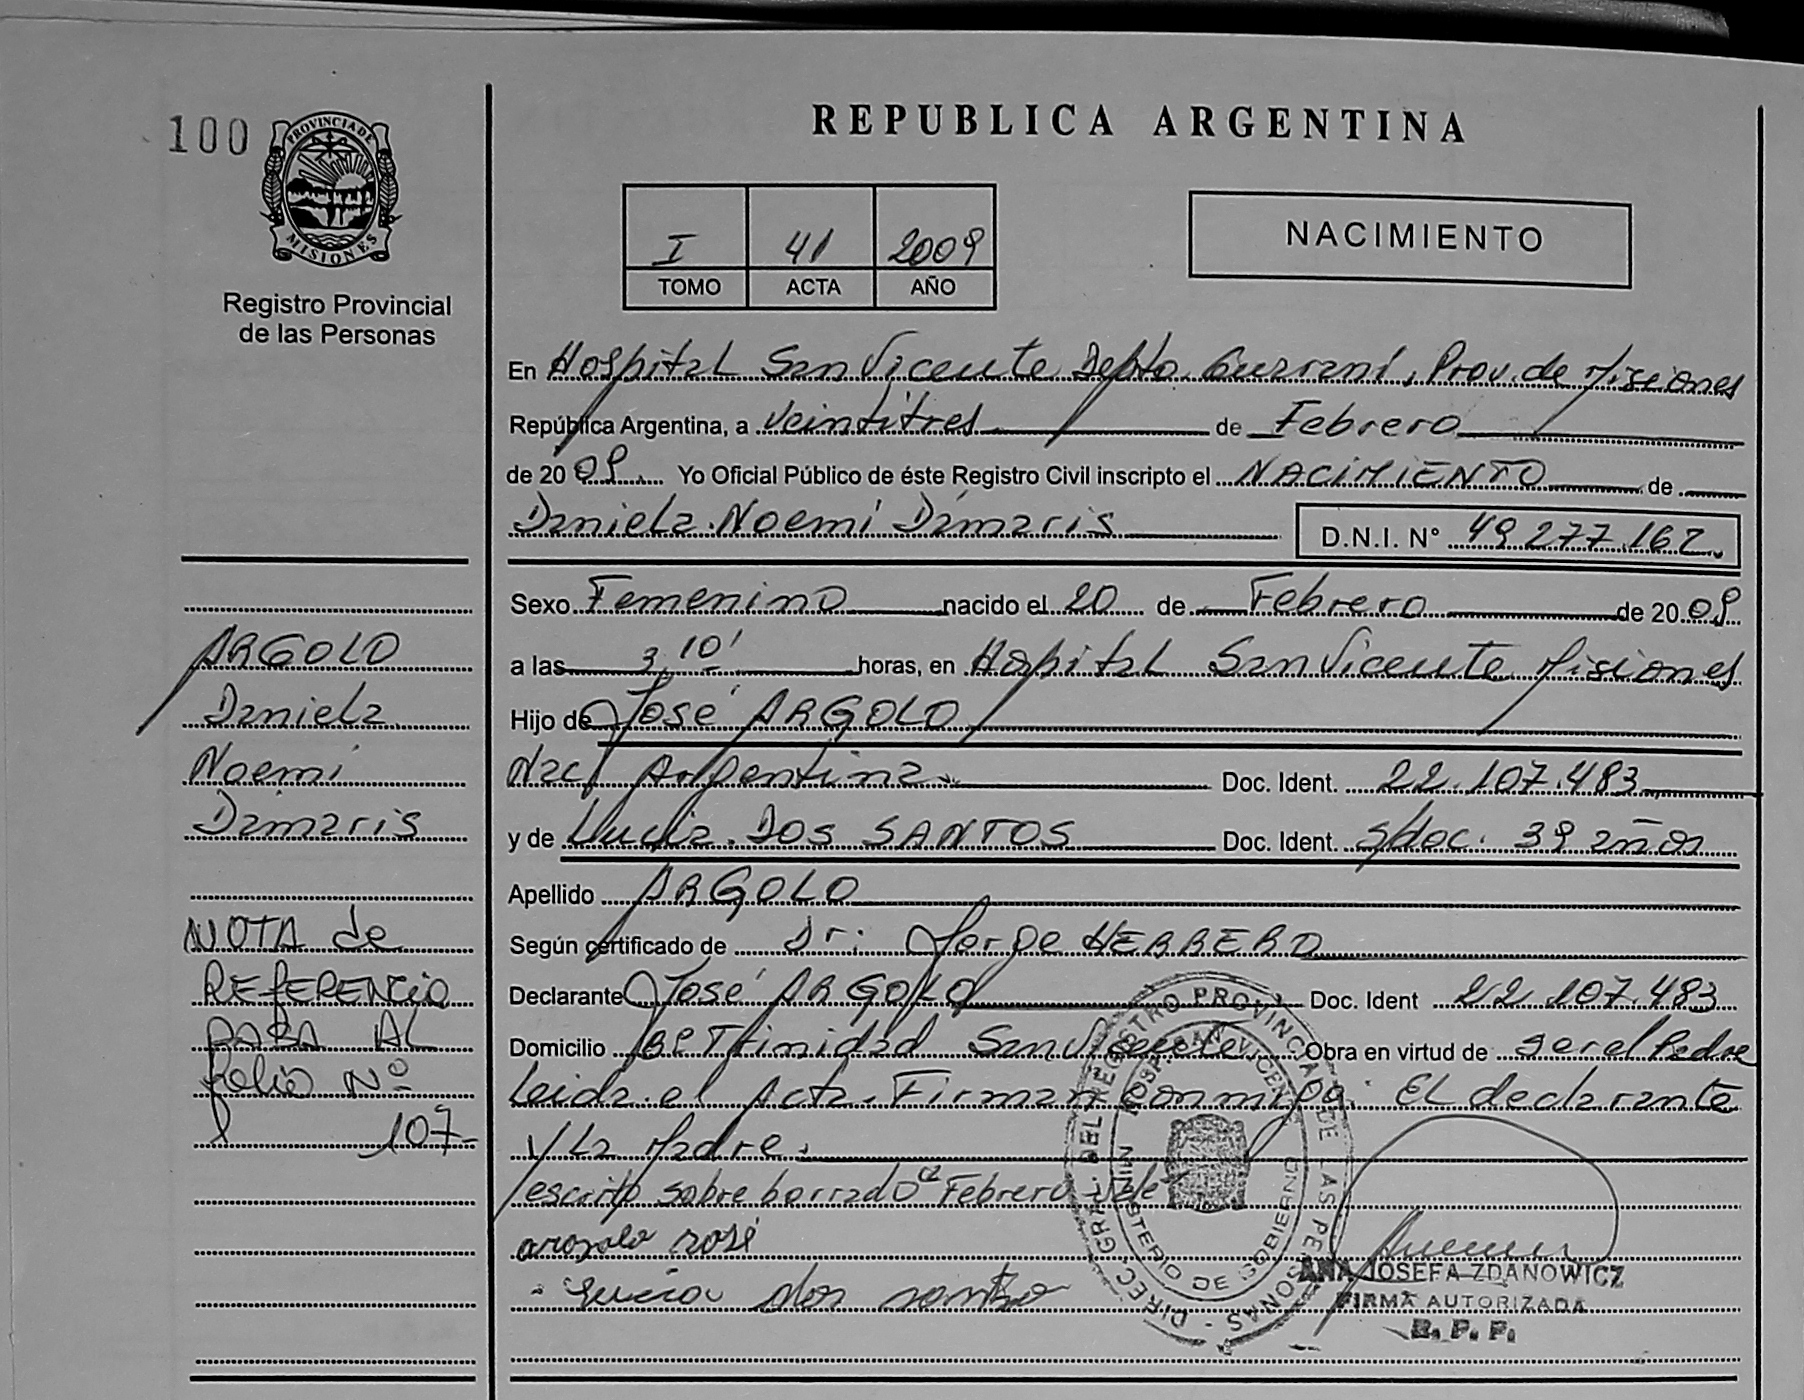 100
PROVINCIA DE
MISIONES
Registro Provincial
de las Personas
REPUBLICA ARGENTINA
I 41 2009
TOMO ACTA AÑO
NACIMIENTO
En Hospital San Vicente Depto. Guaraní, Prov. de Misiones
República Argentina, a veintitres de Febrero
de 20 09 Yo Oficial Público de éste Registro Civil inscripto el NACIMIENTO de
Daniela Noemí Dámaris D.N.I. Nº 49.277.162
Sexo Femenino nacido el 20 de Febrero de 20 09
a las 3,10' horas, en Hospital San Vicente Misiones
Hijo de José ARGOLO
Nac. Argentina Doc. Ident. 22.107.483
y de Lucia DOS SANTOS Doc. Ident. s/doc. 39 años
Apellido ARGOLO
Según certificado de Dr: Jorge HERRERO
Declarante José ARGOLO Doc. Ident 22.107.483
Domicilio Trinidad San Vicente Obra en virtud de ser el Padre
Leida el Acta. Firman conmigo: El declarante
y La Madre.
escrito sobre borrado Febrero Vale
José
Lucia dos
ARGOLO
Daniela
Noemí
Dámaris
NOTA de
REFERENCIA
PASA AL
folio Nº
107-
DIREC. GRAL. DEL REGISTRO PROVINCIAL DE LAS PERSONAS
HOSP. SAN VICENTE
MINISTERIO DE GOBIERNO
ANA JOSEFA ZDANOWICZ
FIRMA AUTORIZADA
R. P. P.